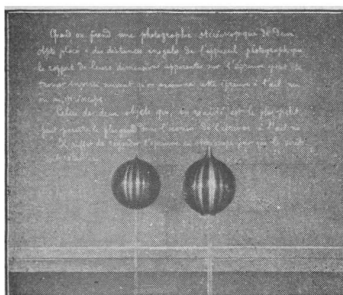 Quand on prend une photographie stéréoscopique de deux
objets placés à des distances inégales de l'appareil photographique
le rapport de leurs dimensions apparentes sur l'épreuve peut se
trouver inversé suivant qu'on examine cette épreuve à l'œil nu
ou au stéréoscope.
Celui des deux objets qui, en réalité est le plus petit
peut paraître le plus grand dans l'examen de l'épreuve à l'œil nu
Il suffit de regarder l'épreuve au stéréoscope pour que la réalité